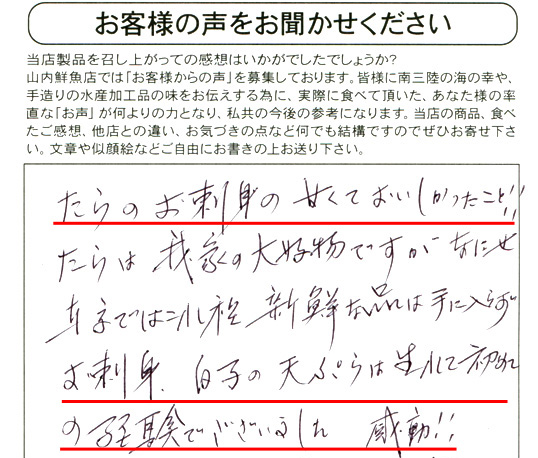 お客様の声をお聞かせください
当店製品を召し上がっての感想はいかがでしたでしょうか?
山内鮮魚店では「お客様からの声」を募集しております。皆様に南三陸の海の幸や、
手造りの水産加工品の味をお伝えする為に、実際に食べて頂いた、あなた様の率
直な「お声」が何よりの力となり、私共の今後の参考になります。当店の商品、食べ
たご感想、他店との違い、お気づきの点など何でも結構ですのでぜひお寄せ下さ
い。文章や似顔絵などご自由にお書きの上お送り下さい。
たらのお刺身の甘くておいしかったこと!!
たらは我家の大好物ですがなにせ
東京ではこれ程新鮮な品は手に入らず
お刺身、白子の天ぷらは生れて初めて
の経験でございました 感動!!